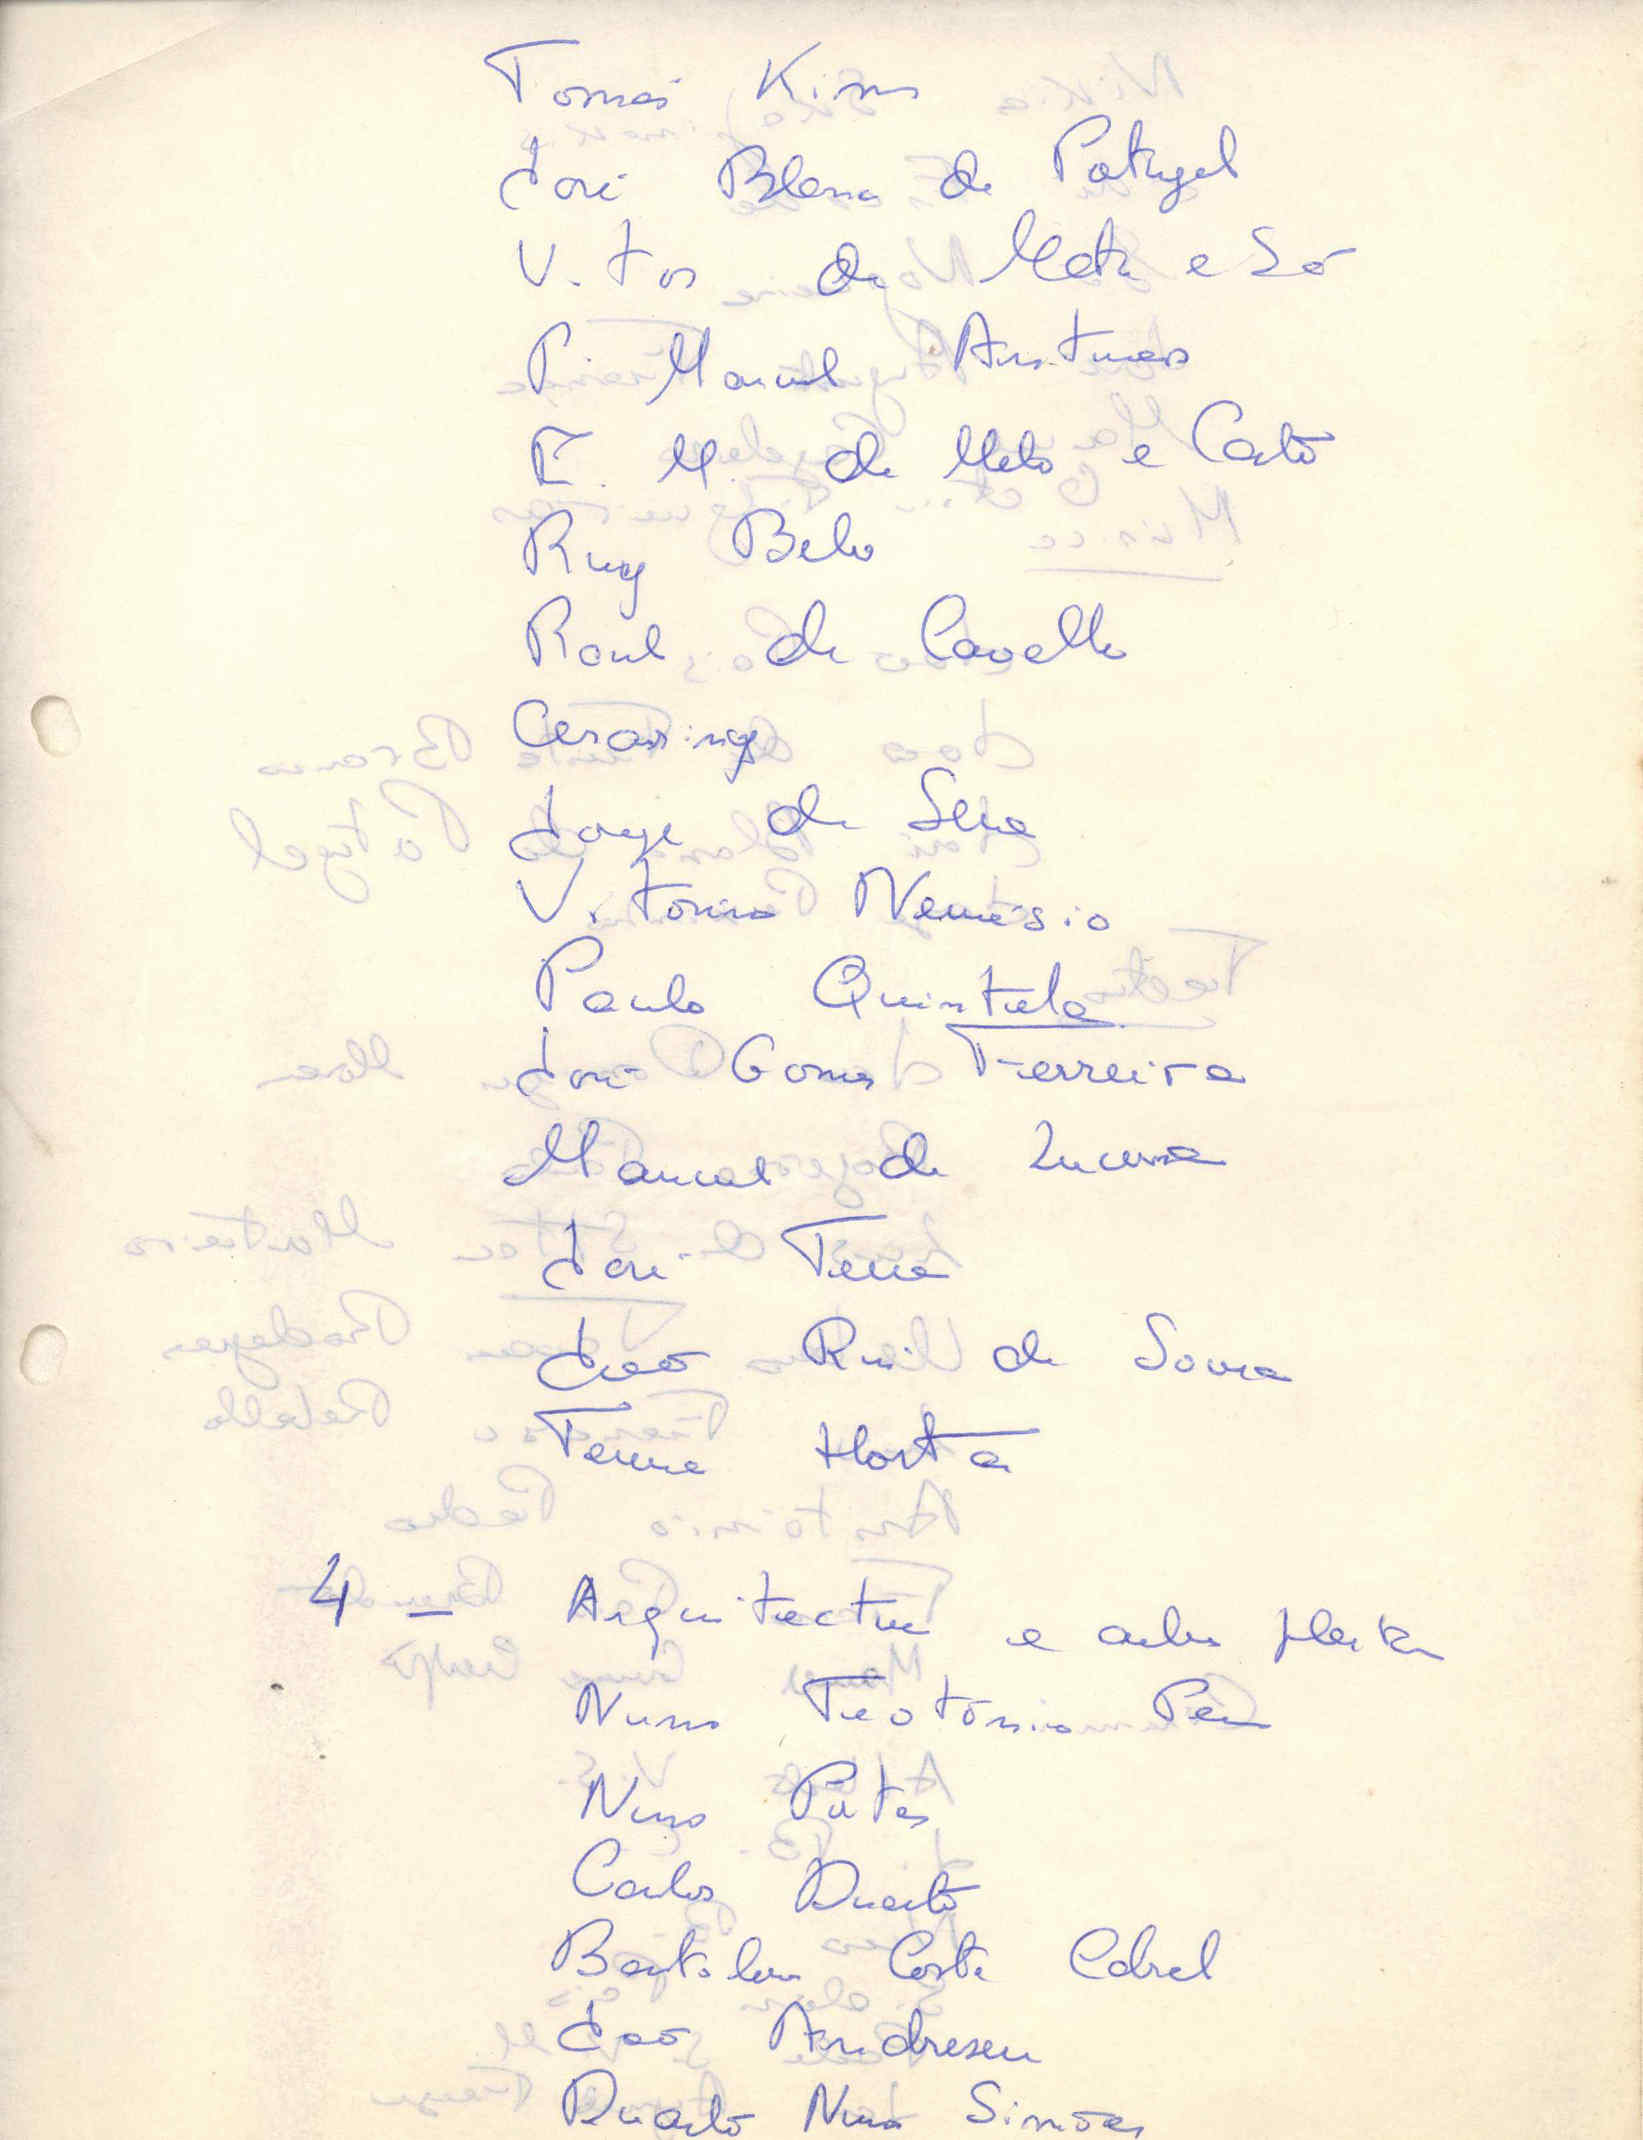 Tomás Kim
José Blanc de Portugal
Vitor de Matos e Sá
P. Manuel Antunes
E. M. de Melo e Castro
Ruy Belo
Raul de Carvalho
Cesariny
Jorge de Sena
Vitorino Nemésio
Paulo Quintela
José Gomes Ferreira
Manuel de Lucena
José
João Rui de Sousa
Teresa Horta
4 - Arquitectura e artes plásticas
Nuno Teotónio Pereira
Nuno Portas
Carlos Duarte
Bartolomeu Costa Cabral
João Andresen
Duarte Nuno Simões